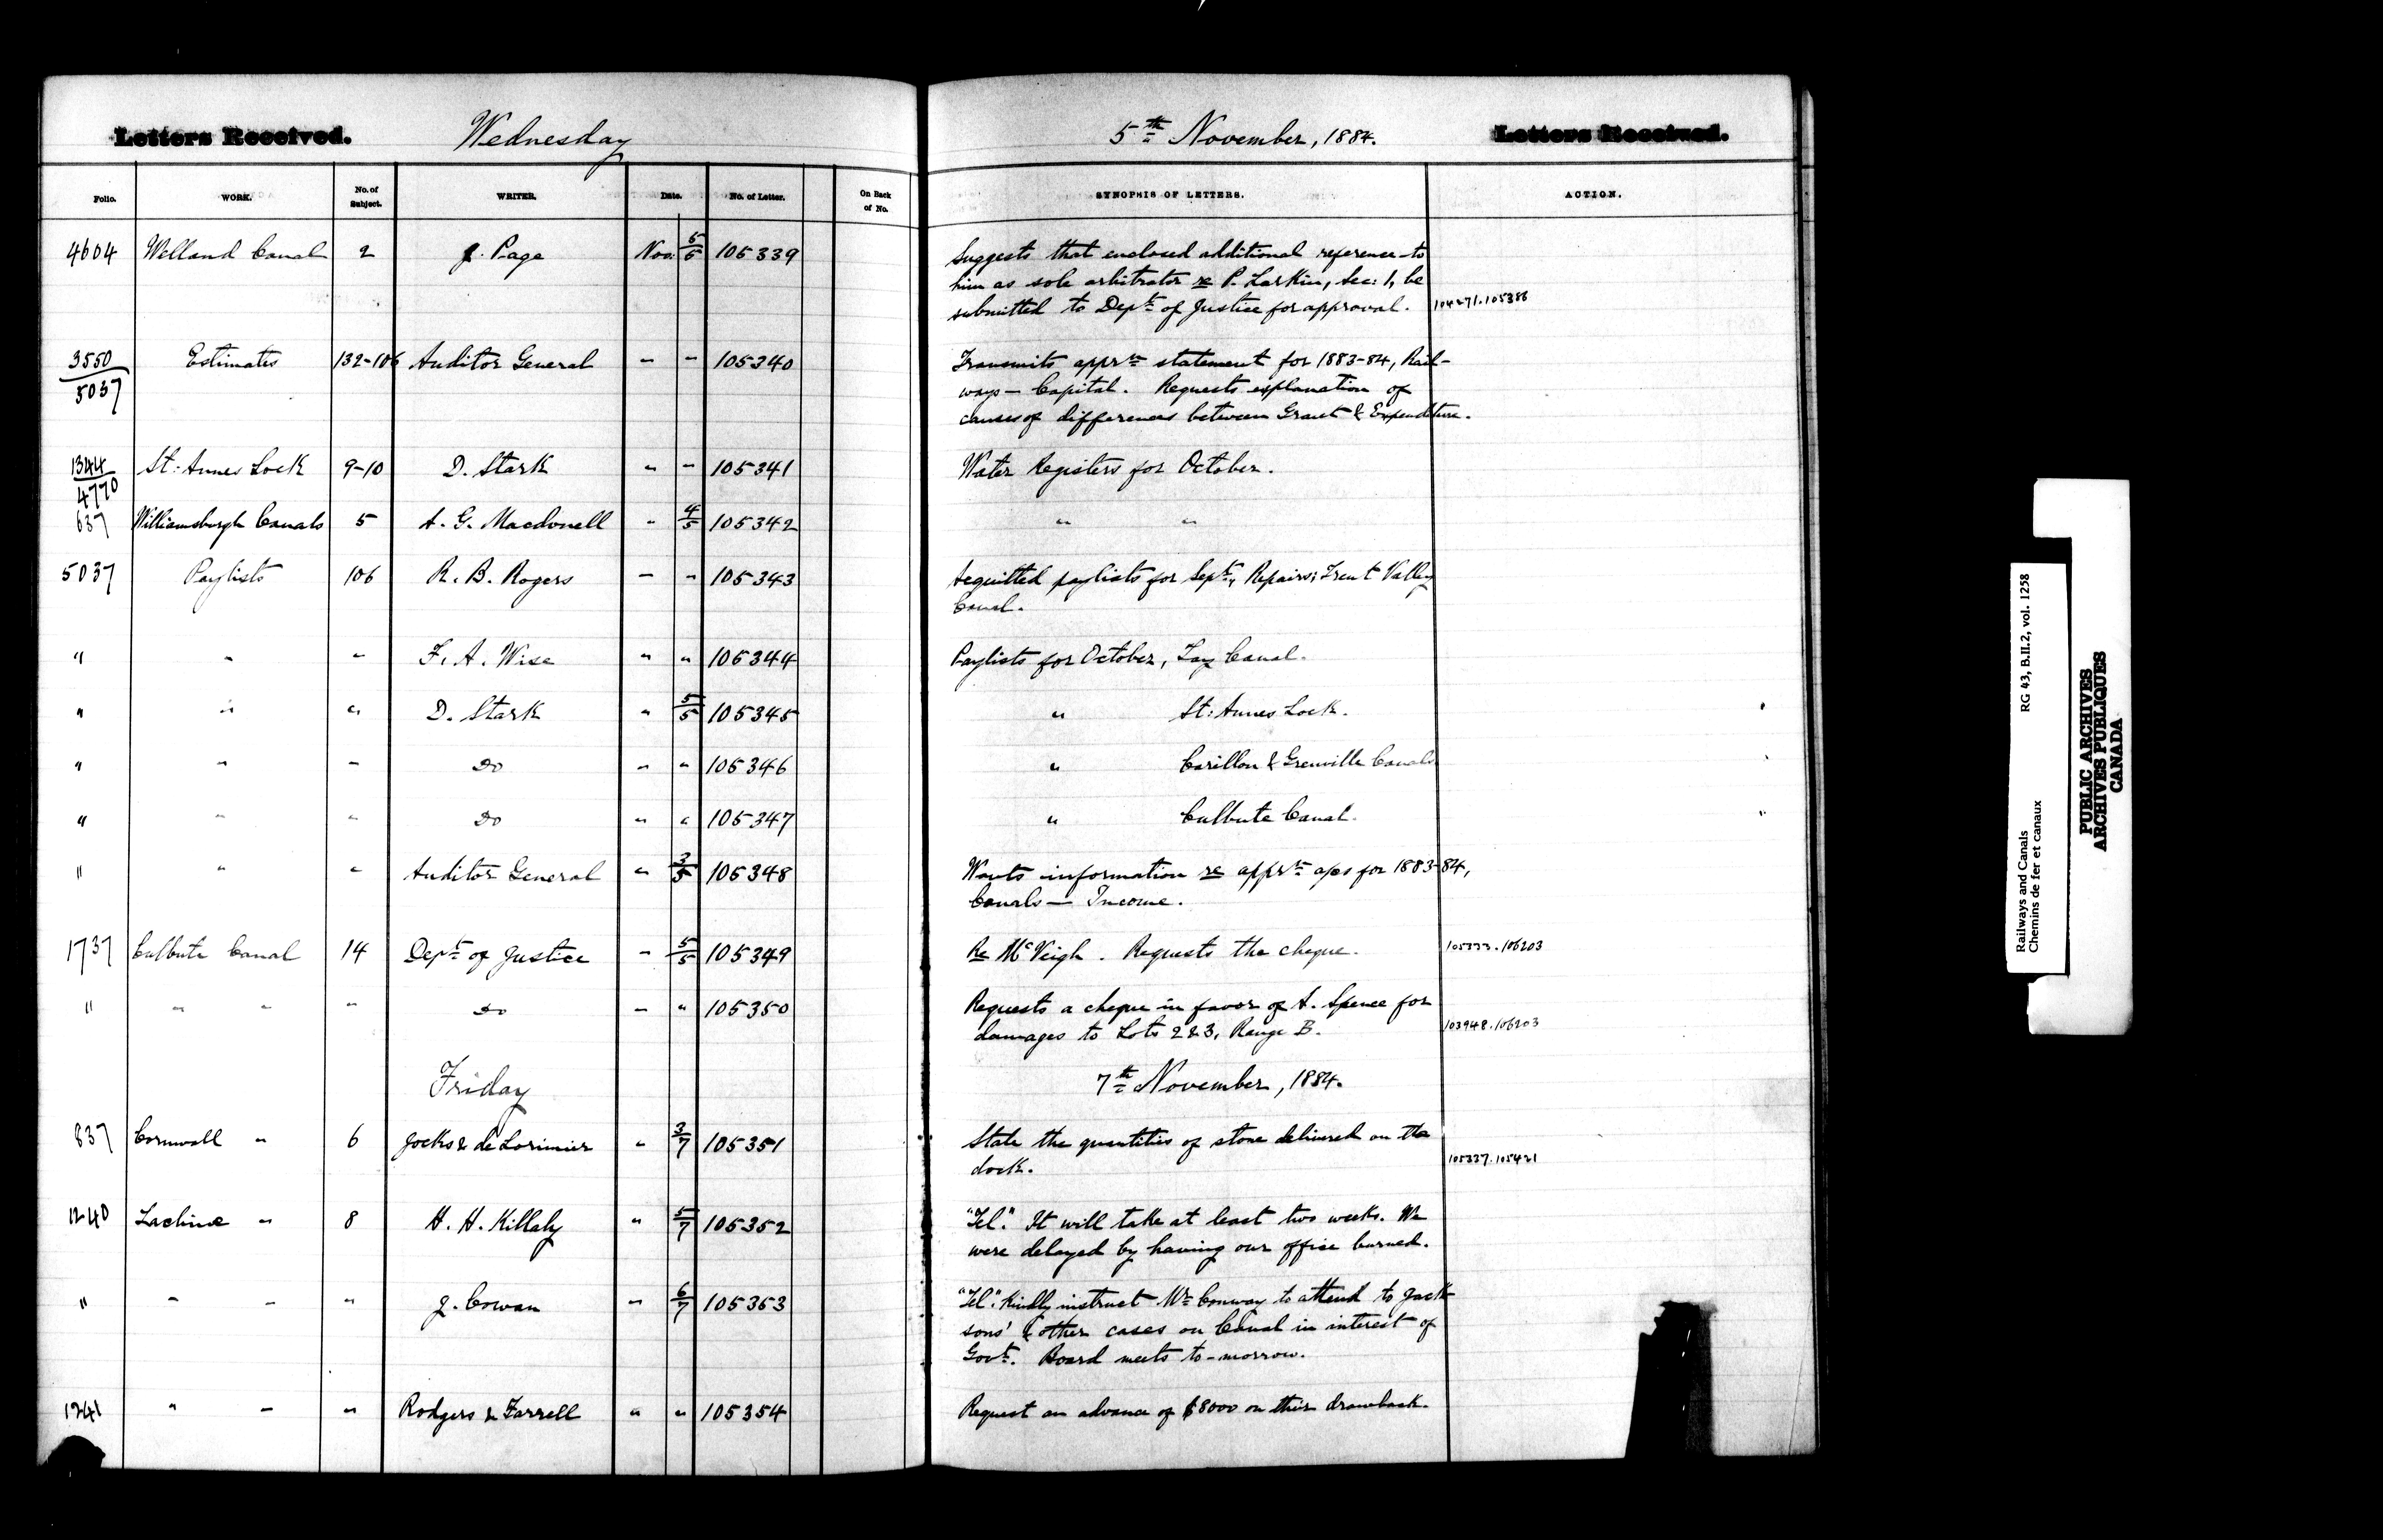 Letters Received. Wednesday 5th November, 1884. Letters Received.
Folio. WORK. No. of Subject. WRITER. Date. No. of Letter. On Back of No. SYNOPSIS OF LETTERS. ACTION.
4604 Welland Canal 2 J. Page Nov. 5/5 105339 Suggests that enclosed additional reference to
him as sole arbitrator re P. Larkin, Sec: 1, be
submitted to Dept of Justice for approval. 104271.105386
3550/5037 Estimates 132-106 Auditor General " " 105340 Transmits apprn statement for 1883-84, Rail-
ways — Capital. Requests explanation of
causes of differences between Grant & Expenditure.
1344/4770 St: Annes Lock 9-10 D. Stark " " 105341 Water Registers for October.
637 Williamsburgh Canals 5 A. G. Macdonell " 4/5 105342 " "
5037 Paylists 106 R. B. Rogers " " 105343 Acquitted paylists for Sept., Repairs; Trent Valley
Canal.
" " " F. A. Wise " " 105344 Paylists for October, Tay Canal.
" " " D. Stark " 5/5 105345 " St: Annes Lock.
" " " Do " " 105346 " Carillon & Grenville Canals
" " " Do " " 105347 " Culbute Canal.
" " " Auditor General " 3/5 105348 Wants information re apprn a/cs for 1883-84,
Canals — Income.
1737 Culbute Canal 14 Dept of Justice " 5/5 105349 Re McVeigh. Requests the cheque. 105333.106203
" " " " Do " " 105350 Requests a cheque in favor of A. Spence for
damages to Lots 2 & 3, Range B. 103948.106203
Friday 7th November, 1884.
837 Cornwall " 6 Jocks & de Lorimier " 3/7 105351 State the quantities of stone delivered on the
dock. 105337.105421
1240 Lachine " 8 H. H. Killaly " 5/7 105352 "Tel." It will take at least two weeks. We
were delayed by having our office burned.
" " " " J. Cowan " 6/7 105353 "Tel". Kindly instruct Mr Conway to attend to Jack-
sons' & other cases on Canal in interest of
Govt. Board meets to-morrow.
1241 " " " Rodgers & Farrell " " 105354 Request an advance of $8000 on their drawback.
Railways and Canals RG 43, B.II.2, vol. 1258
Chemins de fer et canaux
PUBLIC ARCHIVES
ARCHIVES PUBLIQUES
CANADA